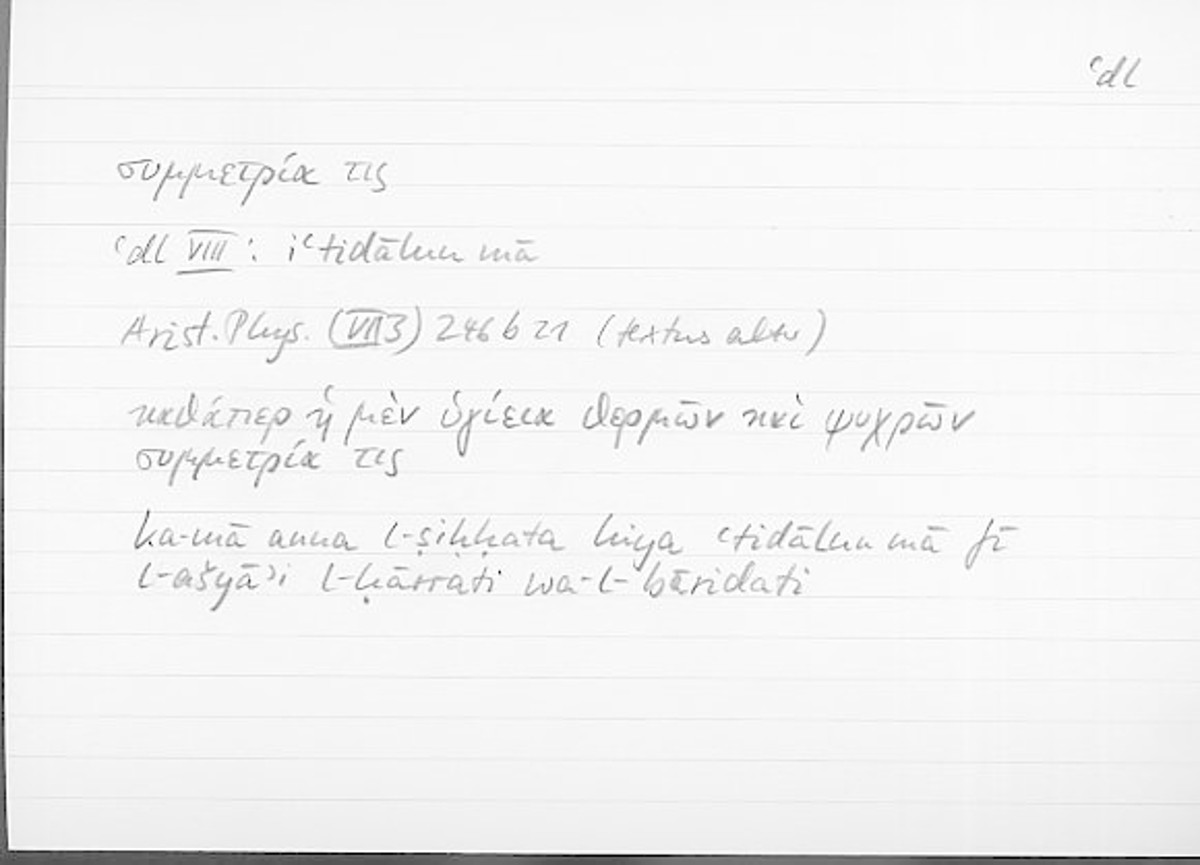 ʿdl
συμμετρία τις
ʿdl VIII: iʿtidālun mā
Arist. Phys. (VII 3) 246 b 21 (textus alter)
καθάπερ ἡ μὲν ὑγίεια θερμῶν καὶ ψυχρῶν
συμμετρία τις
ka-mā anna l-ṣiḥḥata hiya ʿtidālun mā fī
l-ašyāʾi l-ḥārrati wa-l-bāridati